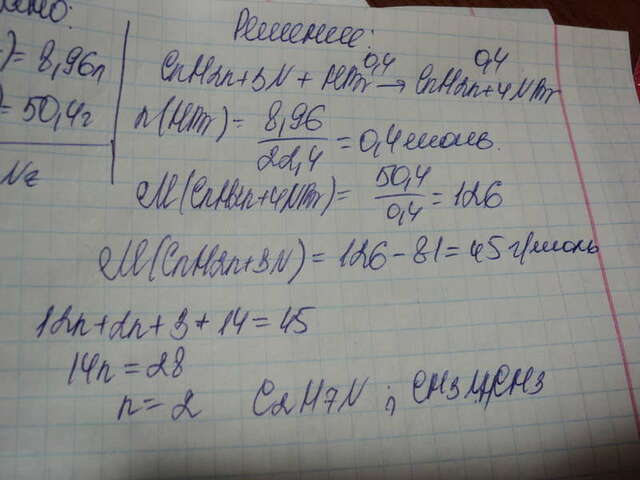 Решение:
) = 8,96л
0,4 0,4
CnH2n+3N + HBr → CnH2n+4NBr
) = 50,4г
n(HBr) = 8,96 / 22,4 = 0,4 моль.
M(CnH2n+4NBr) = 50,4 / 0,4 = 126
M(CnH2n+3N) = 126 - 81 = 45 г/моль
12n+2n+3+14=45
14n=28
n=2 C2H7N ; CH3NHCH3